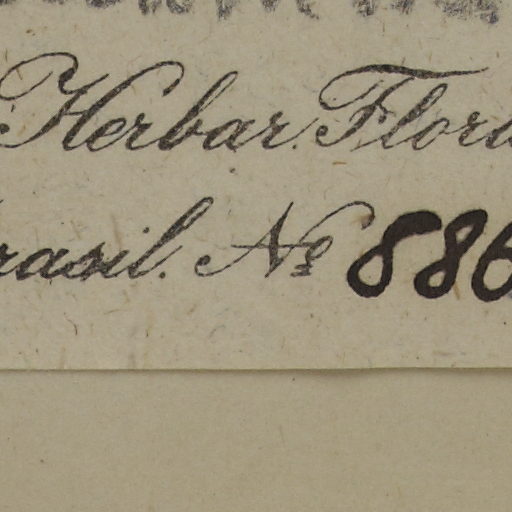 Herbar. Flora
rasil. Nº 886